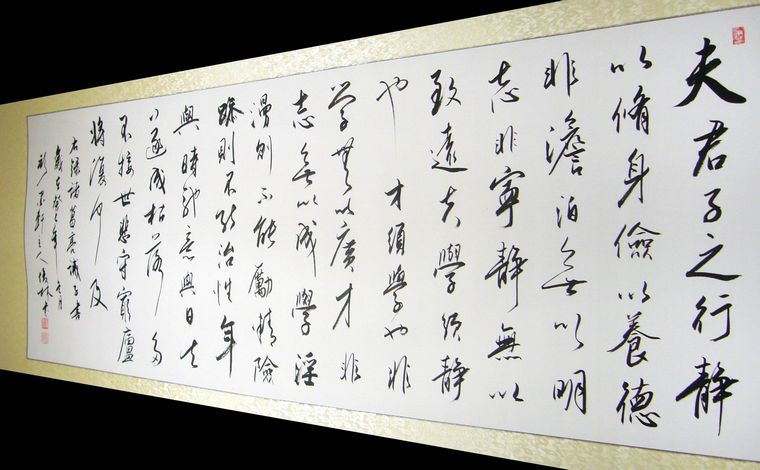 夫君子之行静
以脩身儉以養德
非澹泊無以明
志非寧静無以
致遠夫學須静
也才須學也非
學無以廣才非
志無以成學淫
漫則不能勵精險
躁則不能治性年
與時馳意與日去
遂成枯落多
不接世悲守窮廬
將復何及
右録諸葛亮誡子書
歲在癸巳年月